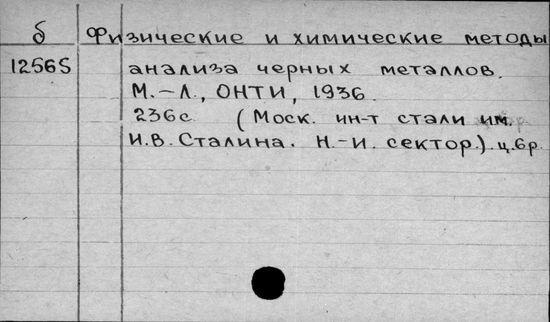 б Физические и химические методы
12565 анализа черных металлов.
М.-Л., ОНТИ, 1936.
236с. (Моск. ин-т стали им.
И.В. Сталина. Н.-И. сектор.). ц. 6р.